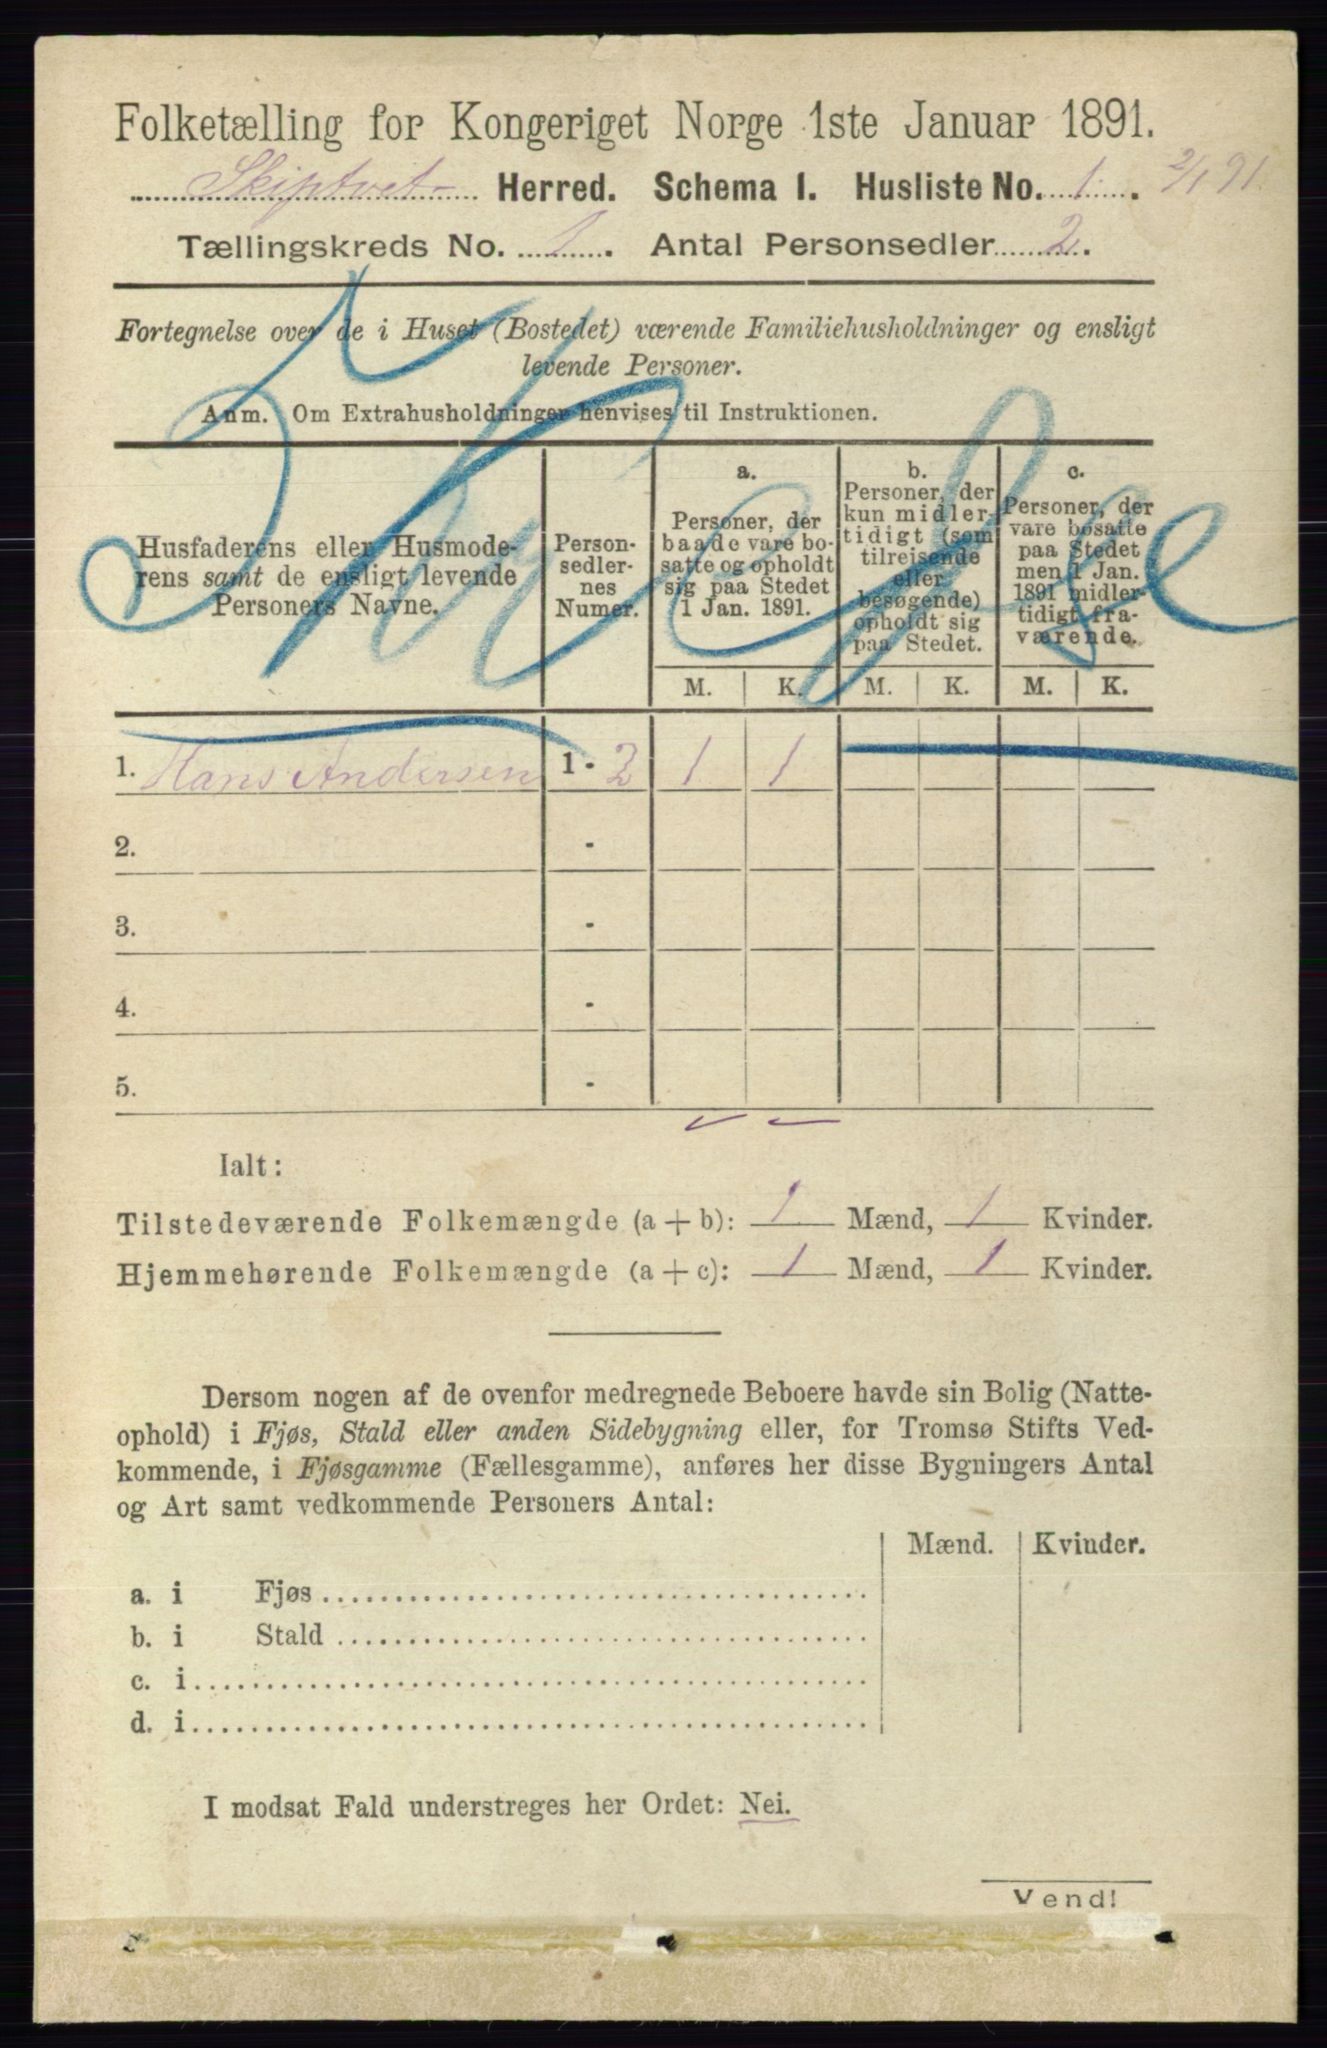 Folketælling for Kongeriget Norge 1ste Januar 1891.
Skiptvet Herred. Schema I. Husliste No. 1. 2/1 91
Tællingskreds No. 1. Antal Personsedler 2.
Fortegnelse over de i Huset (Bostedet) værende Familiehusholdninger og ensligt
levende Personer.
Anm. Om Extrahusholdninger henvises til Instruktionen.
Husfaderens eller Husmode-
rens samt de ensligt levende
Personers Navne.
Person-
sedler-
nes
Numer.
a.
Personer, der
baade vare bo-
satte og opholdt
sig paa Stedet
1 Jan. 1891.
b.
Personer, der
kun midler-
tidigt (som
tilreisende
eller
besøgende)
opholdt sig
paa Stedet.
c.
Personer, der
vare bosatte
paa Stedet
men 1 Jan.
1891 midler-
tidigt fra-
værende.
M. K. M. K. M. K.
1. Hans Andersen 1 - 2 1 1
2. -
3. -
4. -
5. -
Ialt:
Tilstedeværende Folkemængde (a + b): 1 Mænd, 1 Kvinder.
Hjemmehørende Folkemængde (a + c): 1 Mænd, 1 Kvinder.
Dersom nogen af de ovenfor medregnede Beboere havde sin Bolig (Natte-
ophold) i Fjøs, Stald eller anden Sidebygning eller, for Tromsø Stifts Ved-
kommende, i Fjøsgamme (Fællesgamme), anføres her disse Bygningers Antal
og Art samt vedkommende Personers Antal:
Mænd. Kvinder.
a. i Fjøs
b. i Stald
c. i
d. i
I modsat Fald understreges her Ordet: Nei.
Vend!